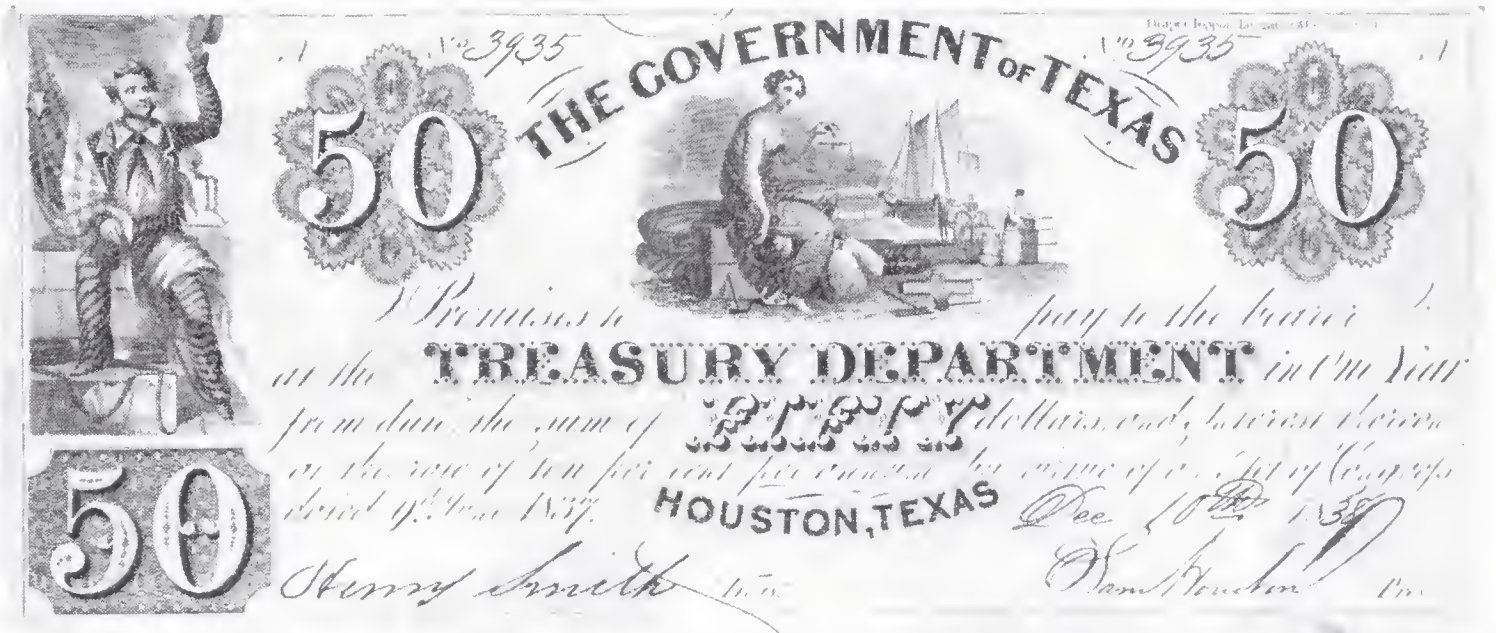 A No 3935
No 3935 A
THE GOVERNMENT OF TEXAS
50
50
Promises to pay to the bearer
at the TREASURY DEPARTMENT in One Year
from date the sum of FIFTY dollars and Interest thereon
at the rate of ten per cent per annum by virtue of an Act of Congress
dated 9th June 1837.
HOUSTON, TEXAS
Dec 10th 1838
50
Henry Smith
Sam Houston